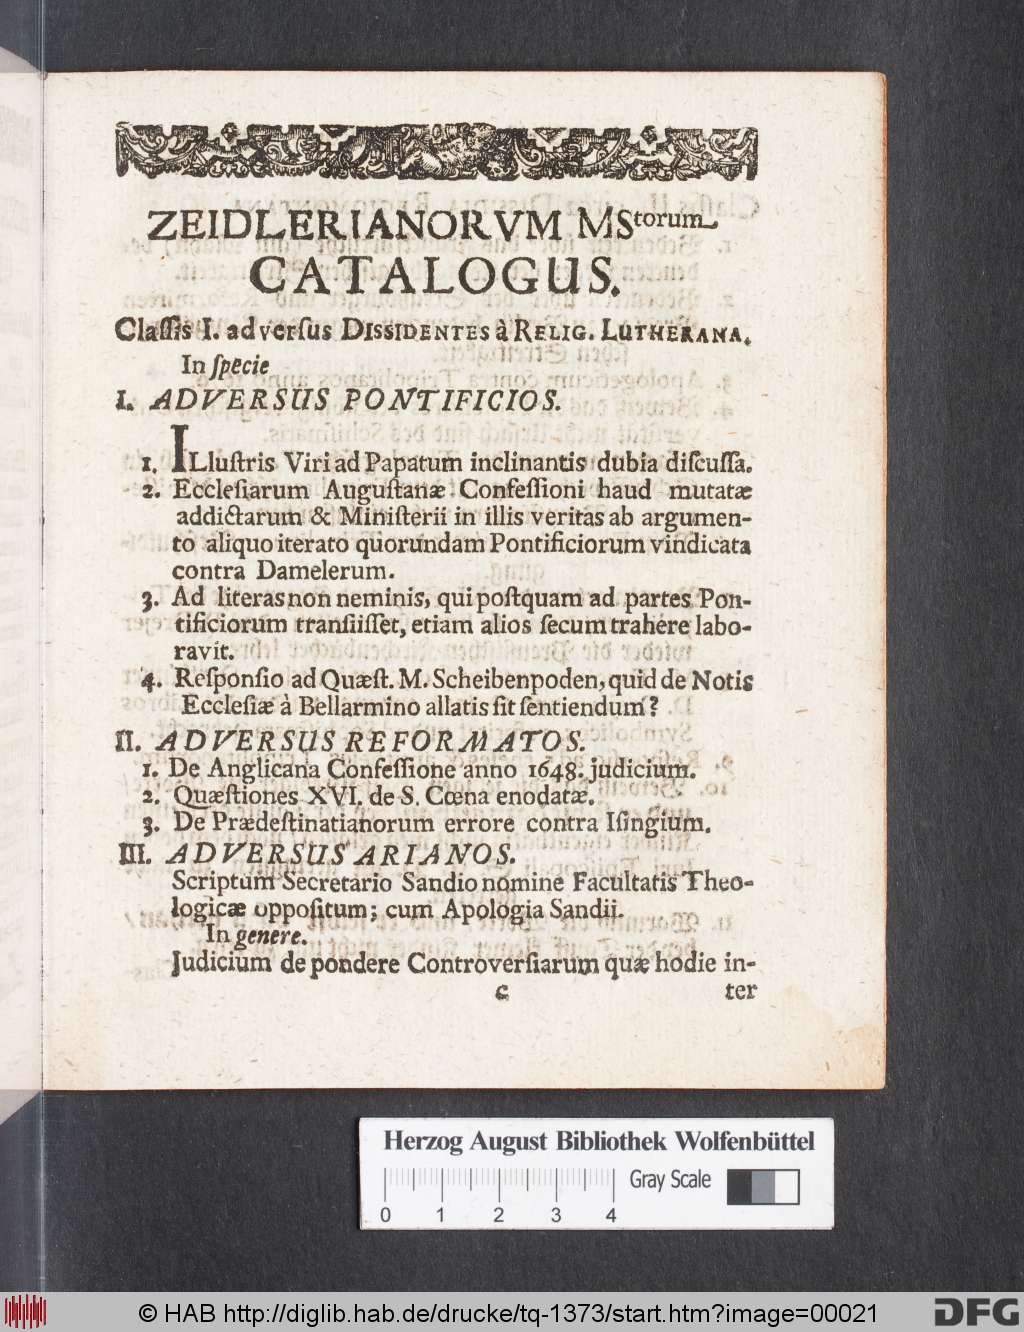 ZEIDLERIANORVM MStorum
CATALOGUS.
Claſſis I. adverſus DISSIDENTES à RELIG. LUTHERANA.
In ſpecie
I. ADVERSUS PONTIFICIOS.
1. ILluſtris Viri ad Papatum inclinantis dubia diſcuſſa.
2. Eccleſiarum Auguſtanæ Confeſſioni haud mutatæ
addictarum & Miniſterii in illis veritas ab argumen-
to aliquo iterato quorundam Pontificiorum vindicata
contra Damelerum.
3. Ad literas non neminis, qui poſtquam ad partes Pon-
tificiorum tranſiiſſet, etiam alios ſecum trahere labo-
ravit.
4. Reſponſio ad Quæſt. M. Scheibenpoden, quid de Notis
Eccleſiæ à Bellarmino allatis ſit ſentiendum?
II. ADVERSUS REFORMATOS.
1. De Anglicana Confeſſione anno 1648. judicium.
2. Quæſtiones XVI. de S. Cœna enodatæ.
3. De Prædeſtinatianorum errore contra Iſingium.
III. ADVERSUS ARIANOS.
Scriptum Secretario Sandio nomine Facultatis Theo-
logicæ oppoſitum; cum Apologia Sandii.
In genere.
Judicium de pondere Controverſiarum quæ hodie in-
c ter
Herzog August Bibliothek Wolfenbüttel
Gray Scale
0 1 2 3 4
© HAB http://diglib.hab.de/drucke/tq-1373/start.htm?image=00021
DFG